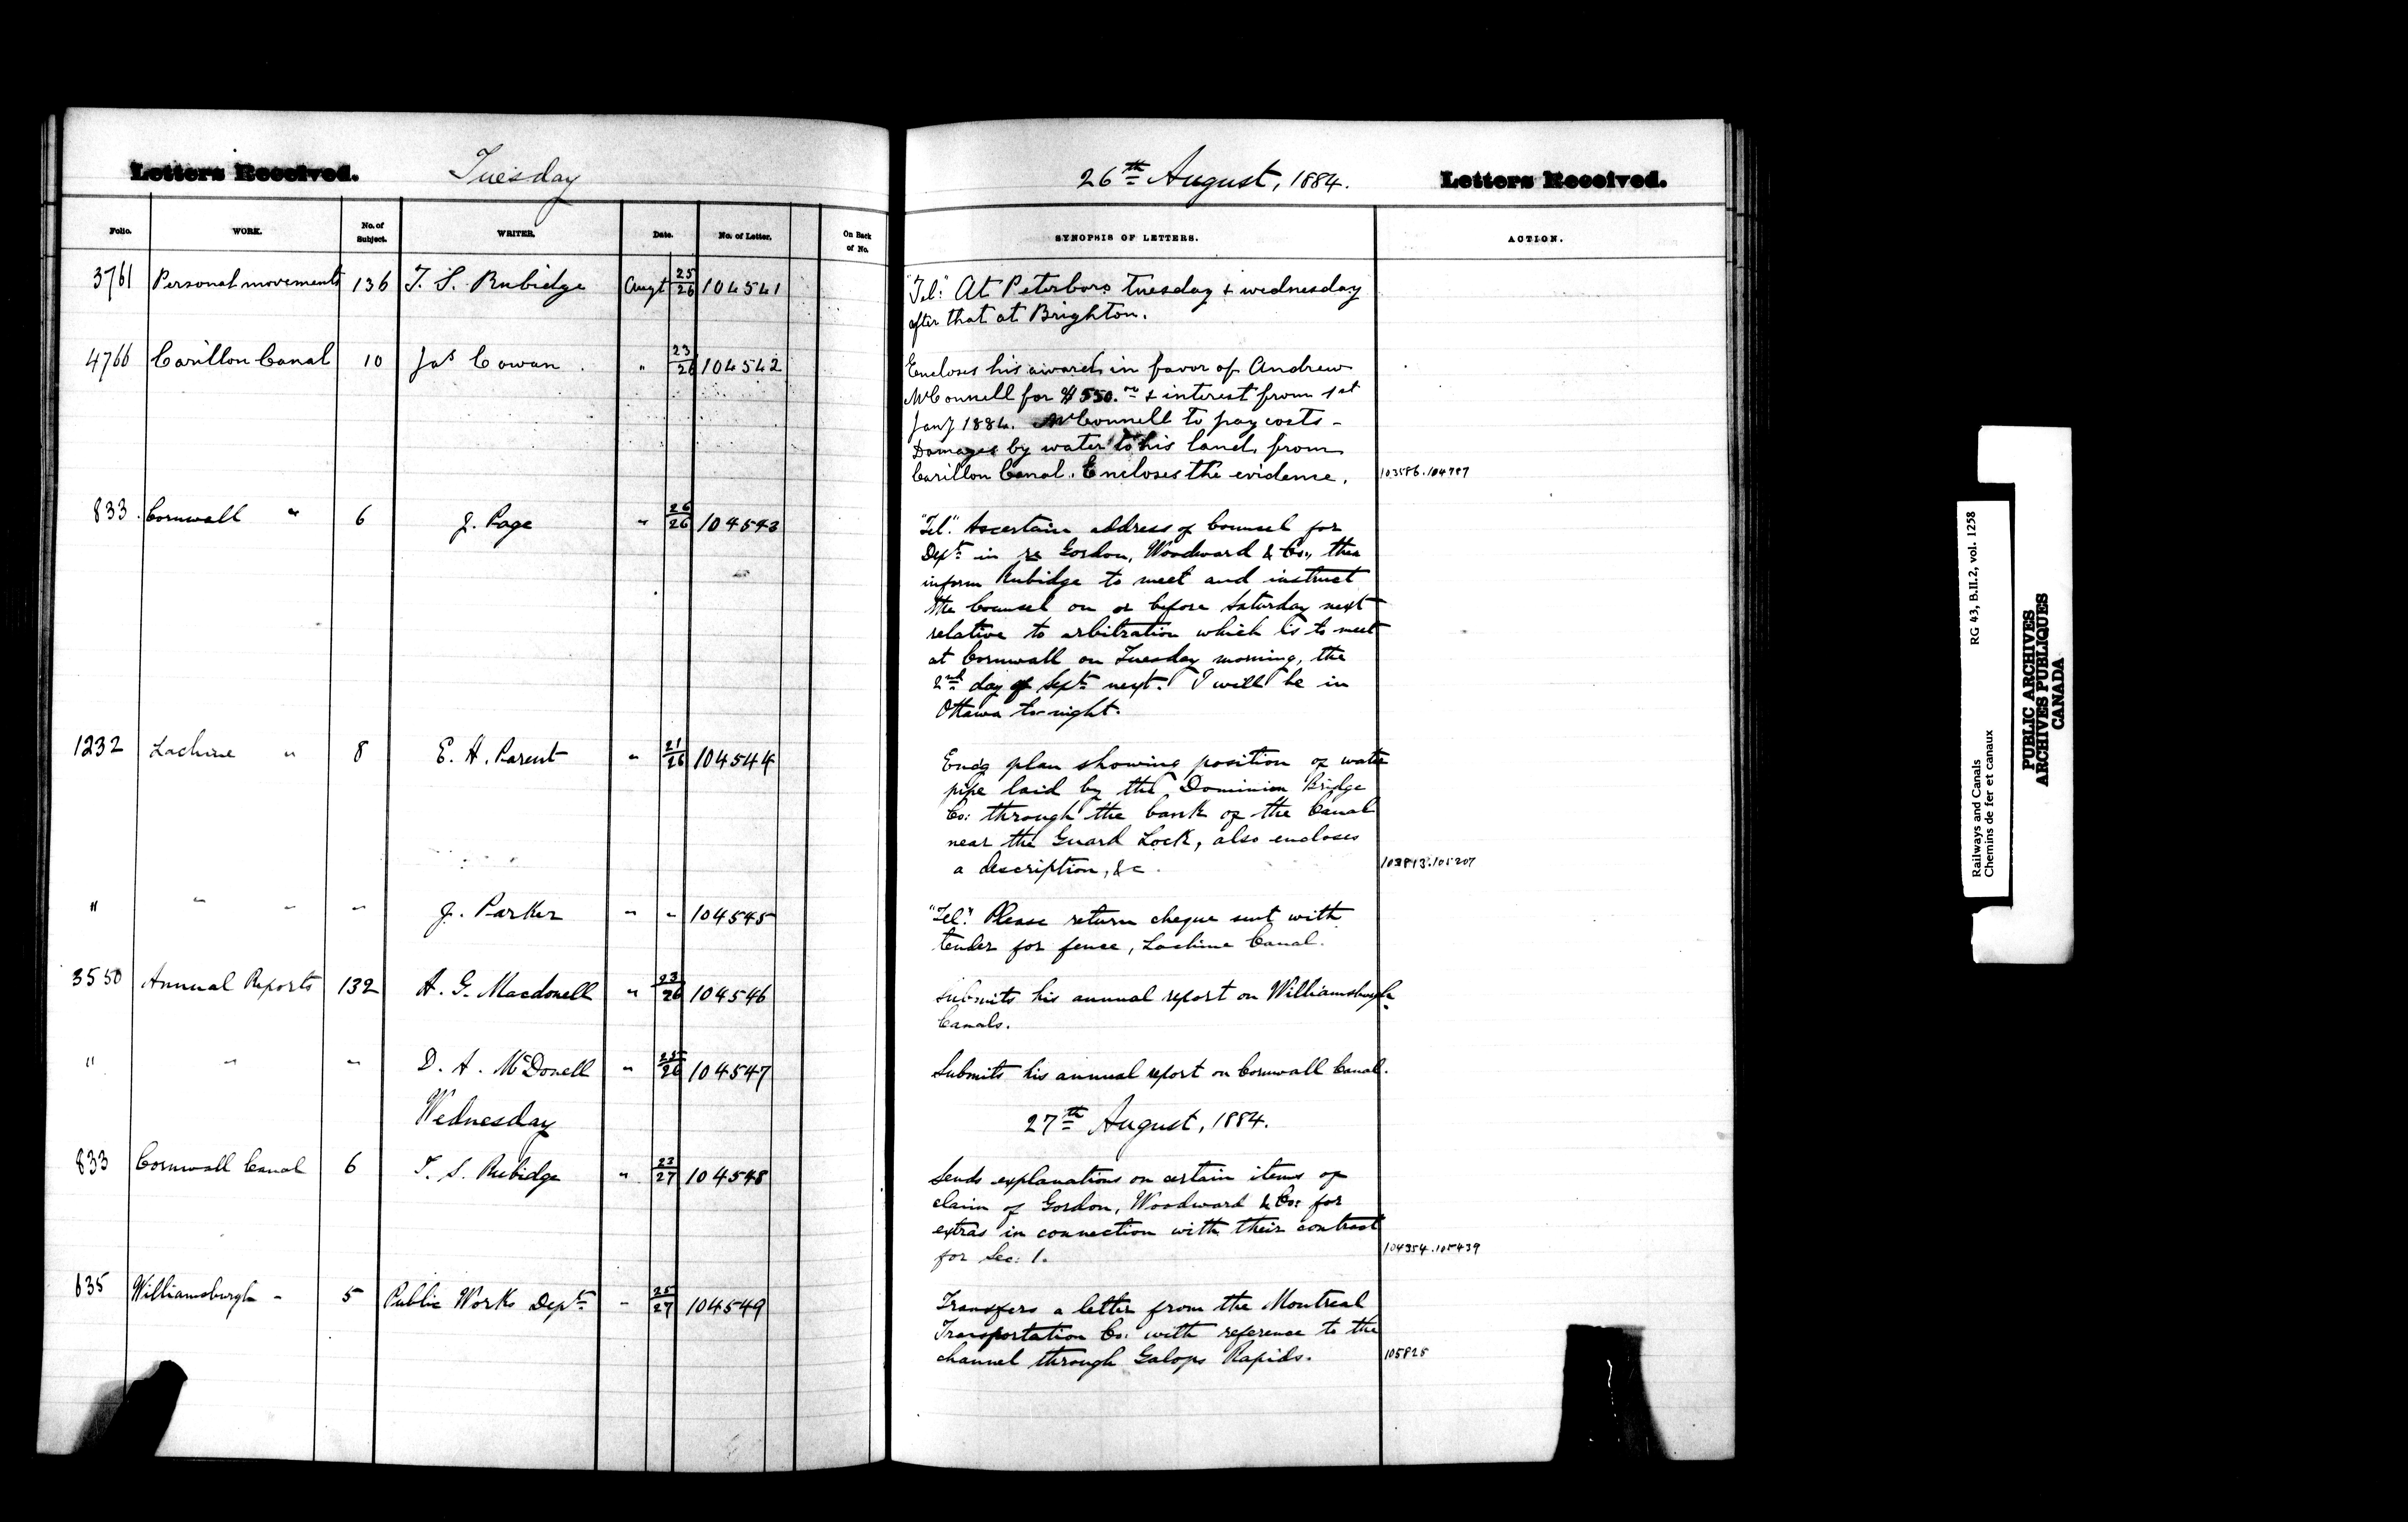 Letters Received. Tuesday
26th August, 1884. Letters Received.
Folio. WORK. No. of Subject. WRITER. Date. No. of Letter. On Back of No.
SYNOPSIS OF LETTERS. ACTION.
3761 Personal movements 136 T. S. Rubidge Augt 25/26 104541
"Tel." At Peterboro tuesday & wednesday
after that at Brighton.
4766 Carillon Canal 10 Jas Cowan " 23/26 104542
Encloses his award in favor of Andrew
McConnell for $550.00 & interest from 1st
Jany 1884. McConnell to pay costs -
Damages by water to his land from
Carillon Canal. Encloses the evidence. 103586.104787
833 Cornwall " 6 J. Page " 26/26 104543
"Tel." Ascertain address of Counsel for
Dept. in re Gordon, Woodward & Co., then
inform Rubidge to meet and instruct
the Counsel on or before Saturday next
relative to arbitration which is to meet
at Cornwall on Tuesday morning, the
2nd day of Sept. next. I will be in
Ottawa to-night.
1232 Lachine " 8 E. H. Parent " 21/26 104544
Encg plan showing position of water
pipe laid by the Dominion Bridge
Co: through the bank of the Canal
near the Guard Lock, also encloses
a description, &c. 103813.105207
" " " " J. Parker " " 104545
"Tel." Please return cheque sent with
tender for fence, Lachine Canal.
3550 Annual Reports 132 A. G. Macdonell " 23/26 104546
Submits his annual report on Williamsburgh
Canals.
" " " D. A. McDonell " 25/26 104547
Submits his annual report on Cornwall Canal.
Wednesday
27th August, 1884.
833 Cornwall Canal 6 T. S. Rubidge " 23/27 104548
Sends explanations on certain items of
claim of Gordon, Woodward & Co: for
extras in connection with their contract
for Sec: 1. 104354.105439
635 Williamsburgh " 5 Public Works Dept. " 25/27 104549
Transfers a letter from the Montreal
Transportation Co: with reference to the
channel through Galops Rapids. 105825
Railways and Canals RG 43, B.II.2, vol. 1258
Chemins de fer et canaux
PUBLIC ARCHIVES
ARCHIVES PUBLIQUES
CANADA